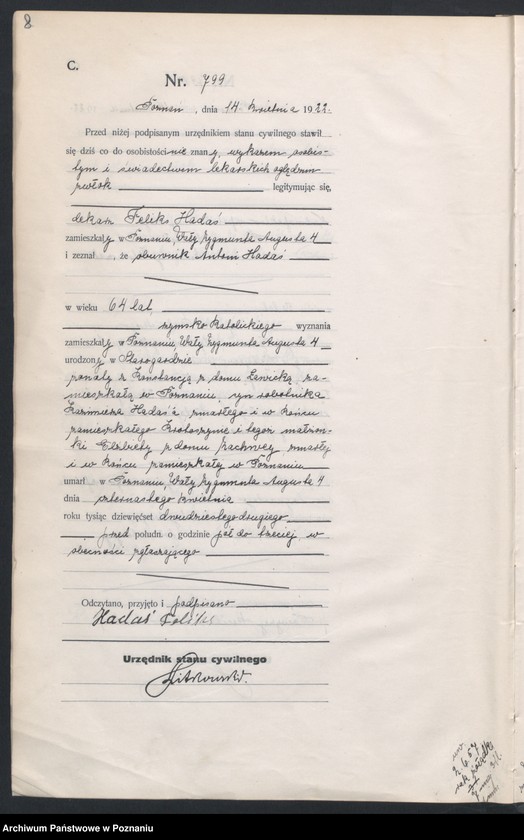 8
C.
Nr. 799
Poznań, dnia 14 kwietnia 1922.
Przed niżej podpisanym urzędnikiem stanu cywilnego stawił
się dziś co do osobistości nie znany, wykazem osobis-
tym i świadectwem lekarskich oględzin
zwłok legitymując się,
lekarz Feliks Hadaś
zamieszkały w Poznaniu, Wały Zygmunta Augusta 4
i zeznał, że oburnik Antoni Hadaś
w wieku 64 lat,
rzymsko katolickiego wyznania
zamieszkały w Poznaniu, Wały Zygmunta Augusta 4
urodzony w Starogardzie
żonaty z Konstancją z domu Ławicką, za-
mieszkałą w Poznaniu, syn robotnika
Kazimierza Hadaś'a zmarłego i w końcu
zamieszkałego i tegoż małżon-
ki Elżbiety z domu zmarłej
i w końcu zamieszkałej w Poznaniu
umarł w Poznaniu, Wały Zygmunta Augusta 4
dnia czternastego kwietnia
roku tysiąc dziewięćset dwudziestego drugiego
przed połudn. o godzinie pół do trzeciej, w
obecności zgłaszającego
Odczytano, przyjęto i podpisano
Hadaś Feliks
Urzędnik stanu cywilnego
Archiwum Państwowe w Poznaniu